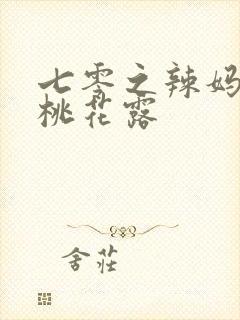 七零之辣妈
桃花露
舍莊